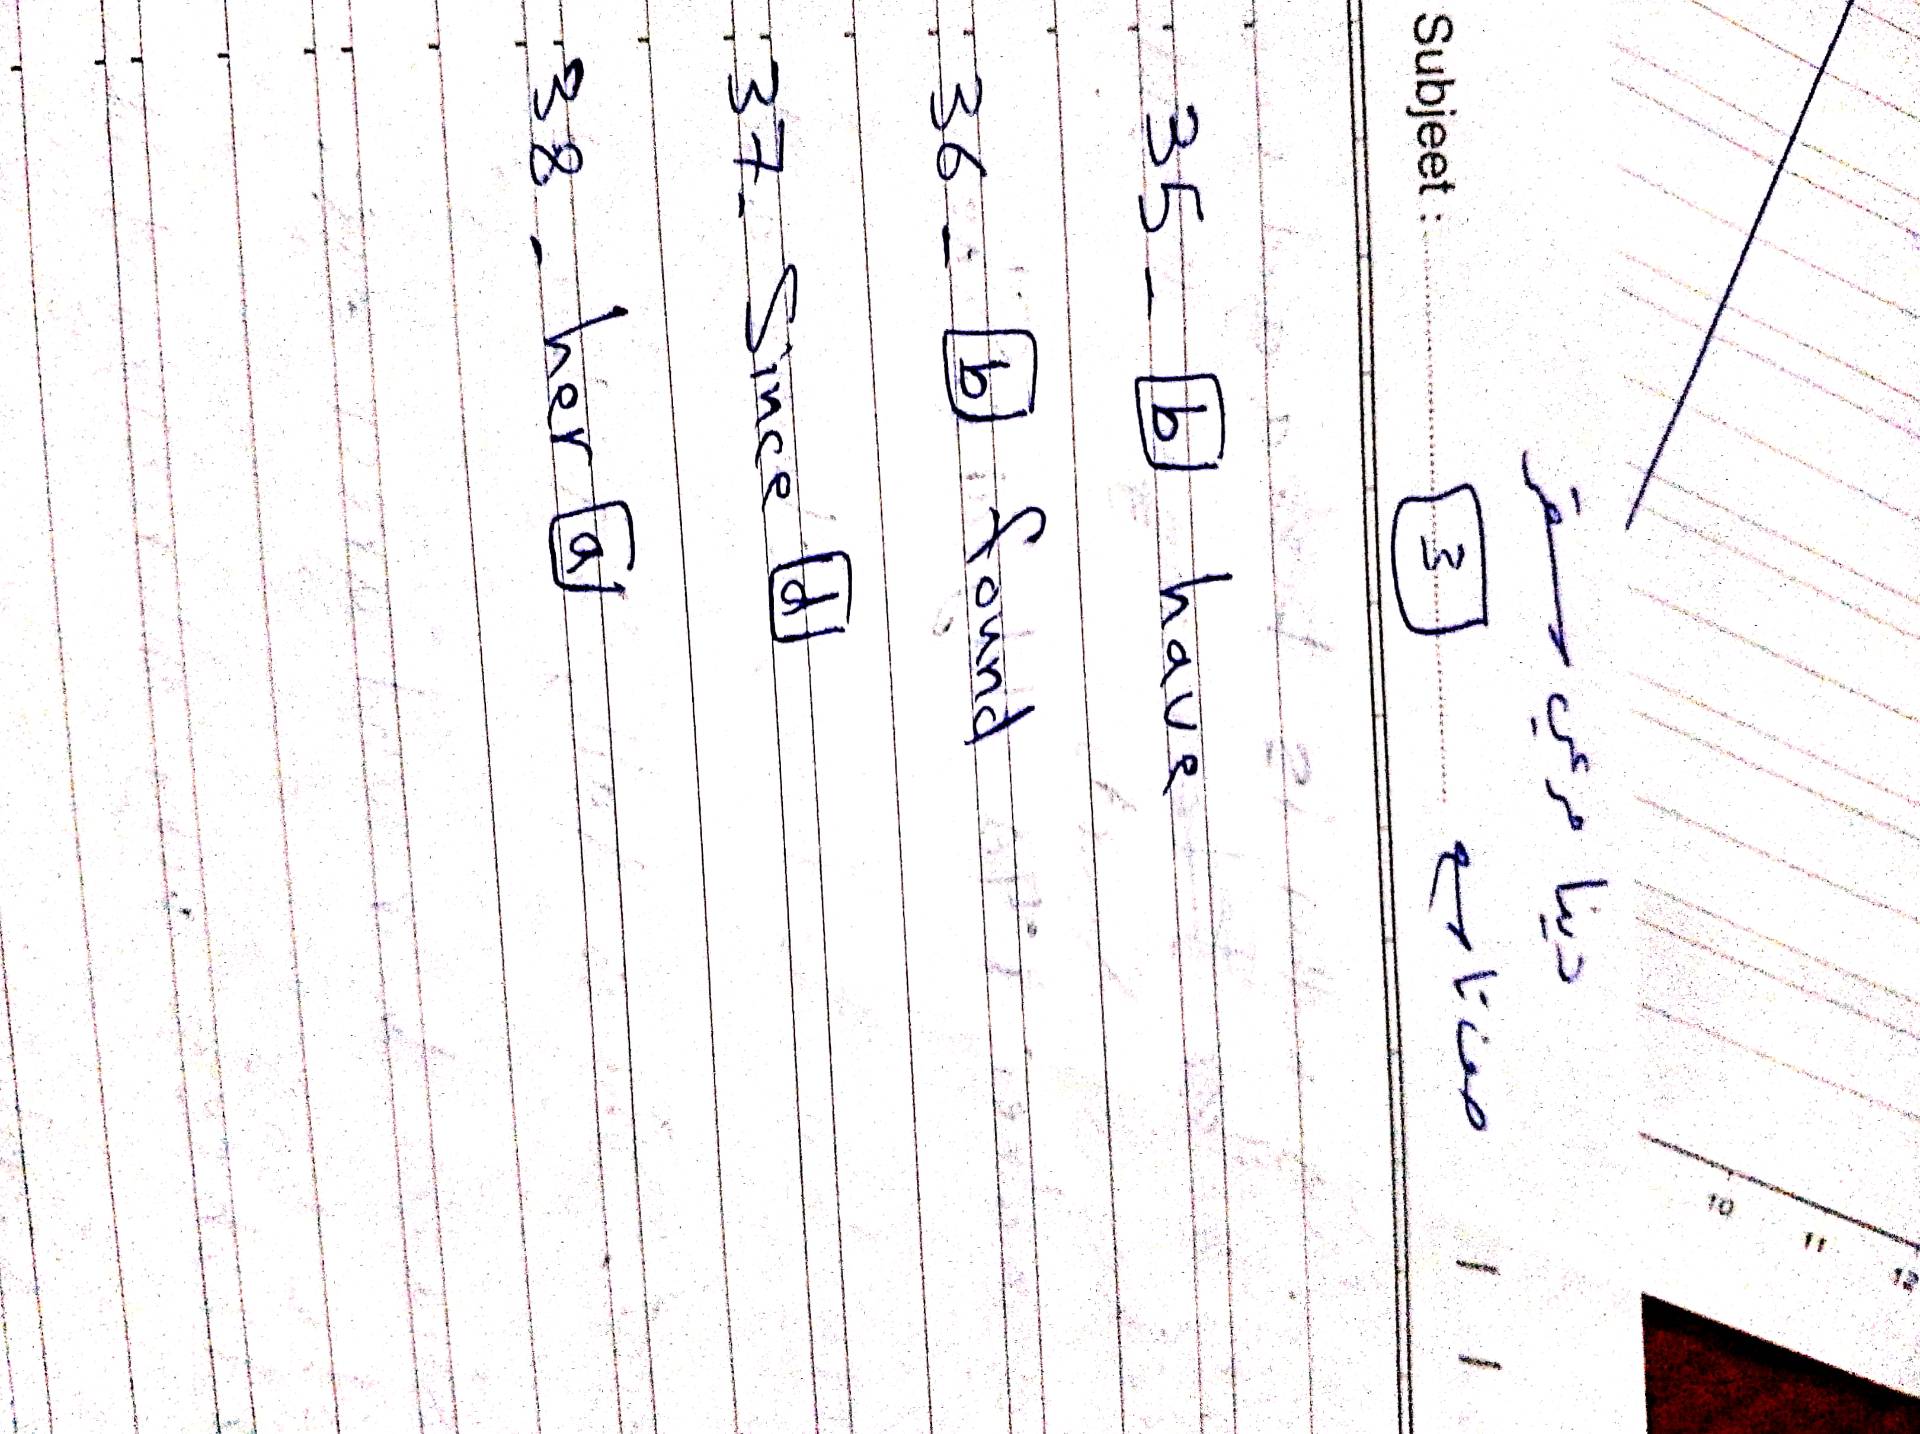 10 11 12
مرعي
Subjeet : 3 / /
35 - b have
36 - b found
37 - Since d
38 - her a